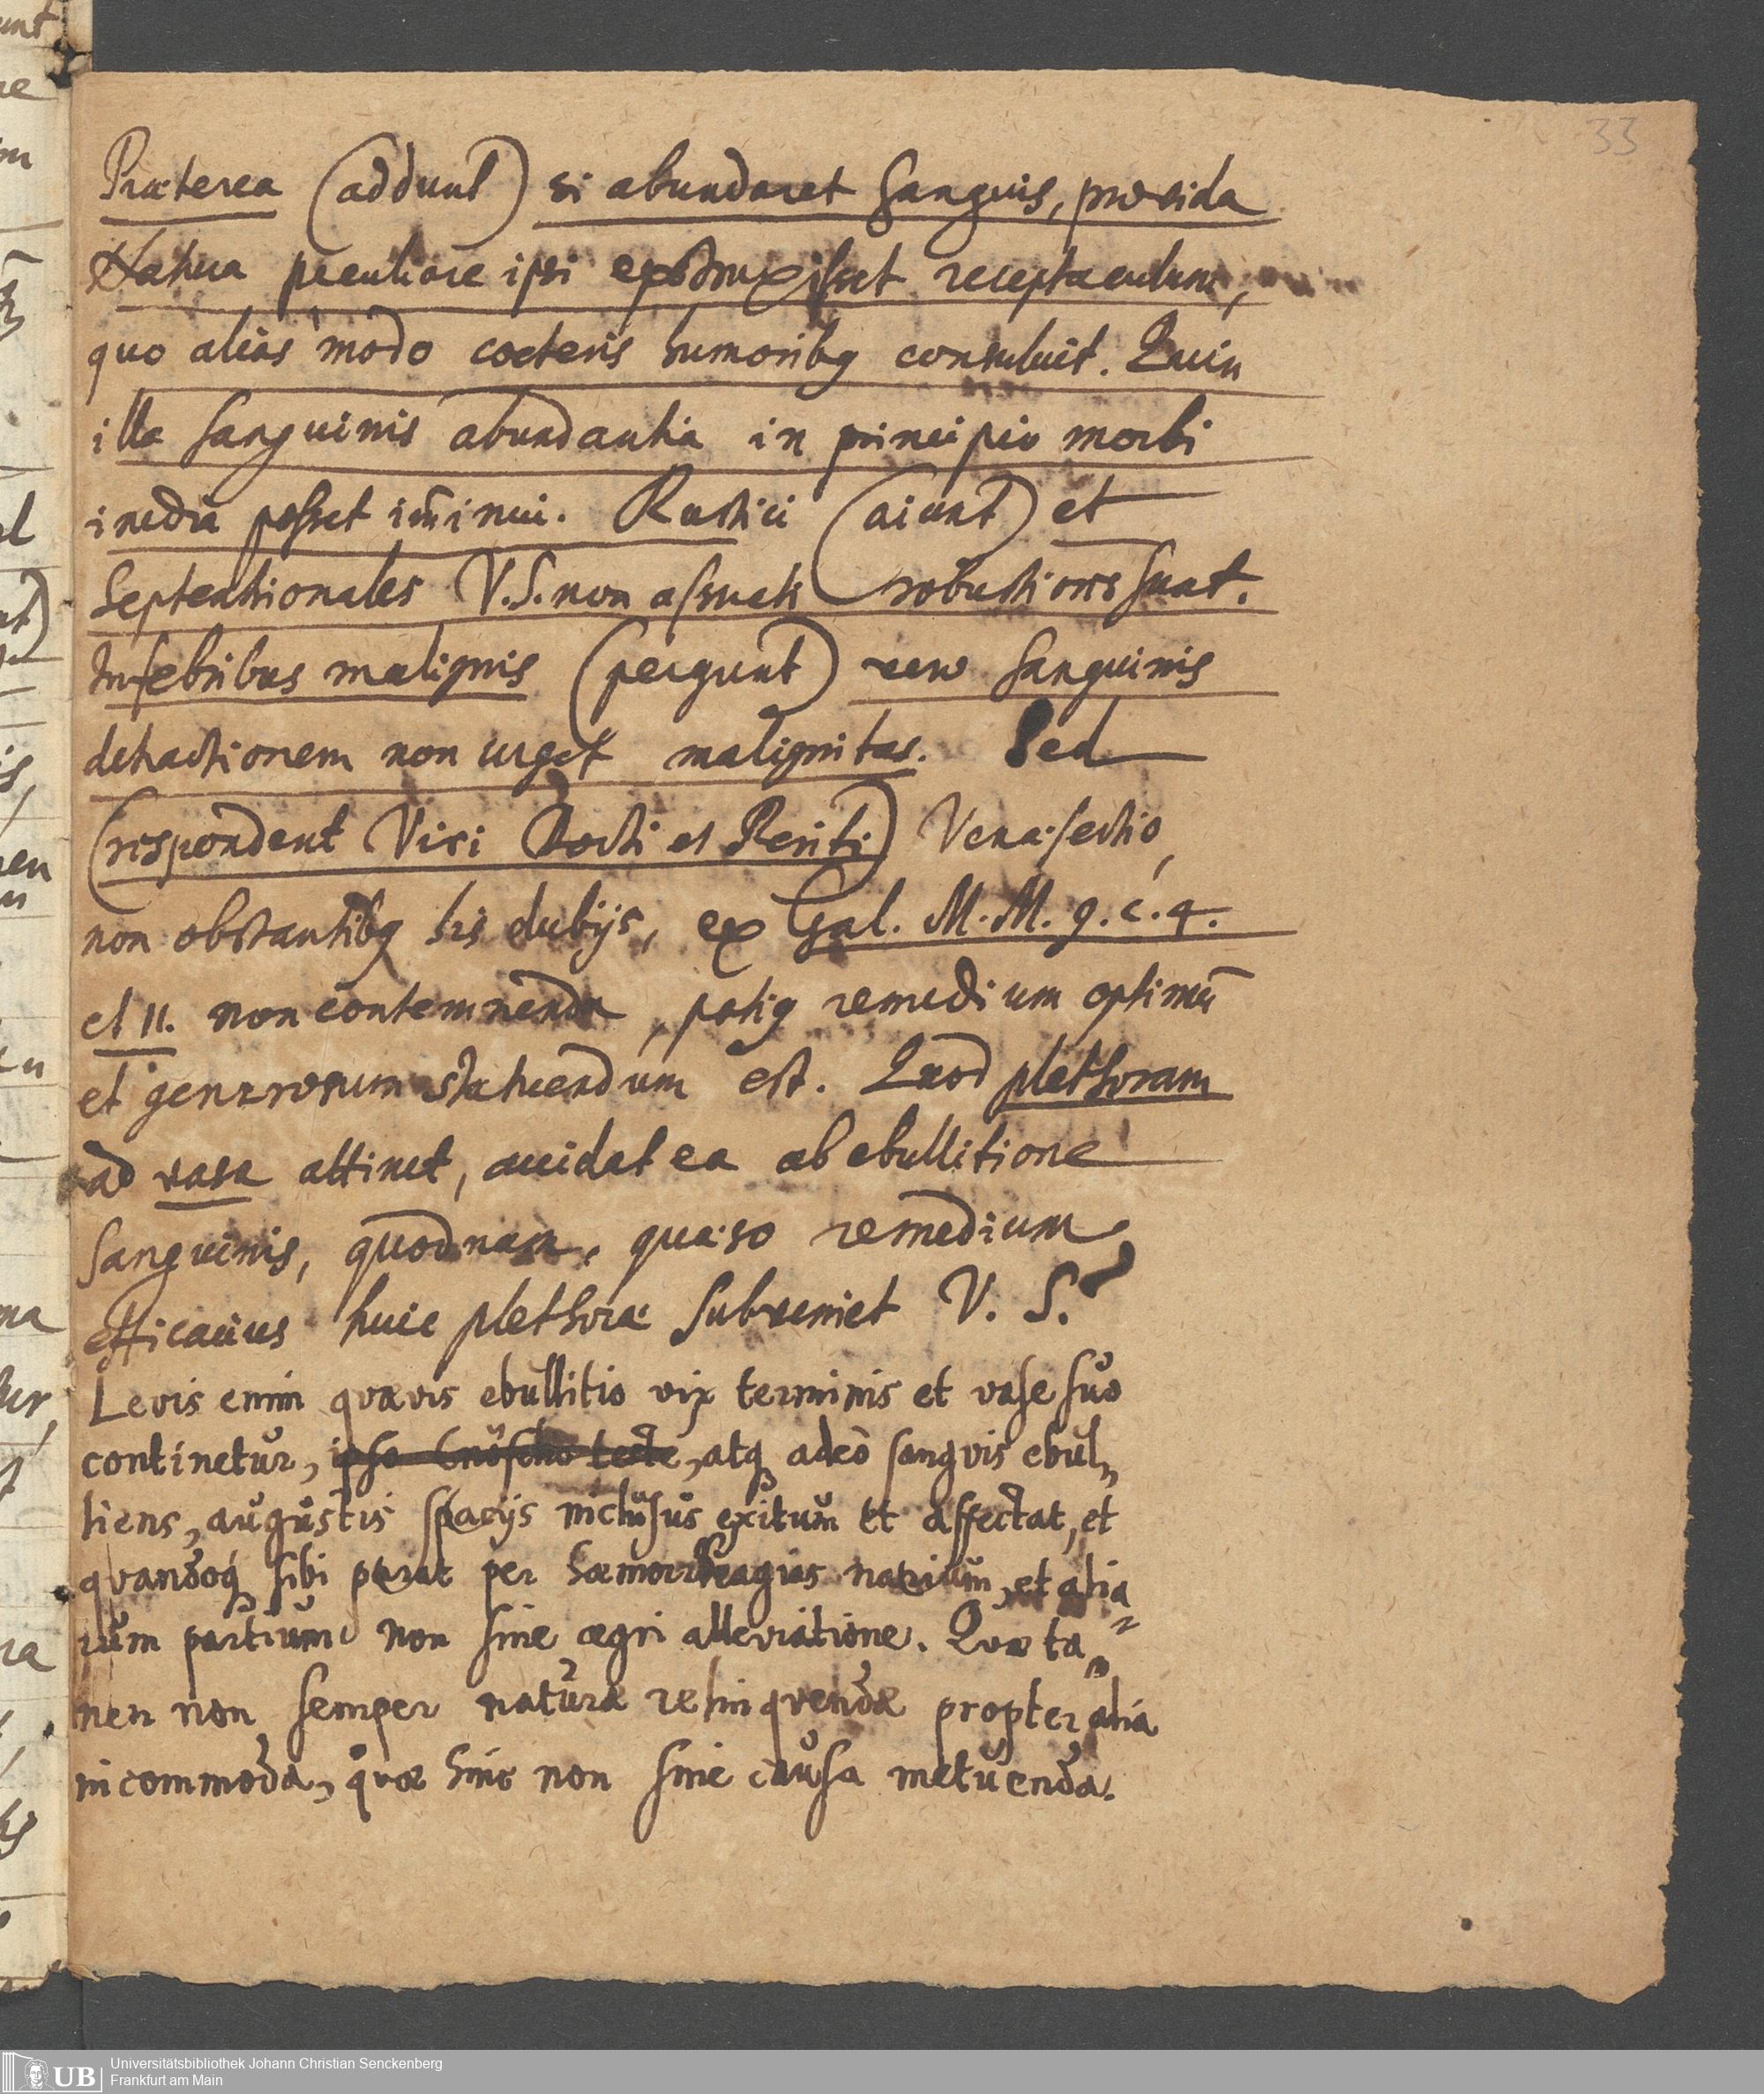 33
Præterea (addunt) si abundaret Sanguis, provida
Natura peculiare ipsi exstruxisset receptaculum,
quo alias modo coeteris humoribq consuluit. Quin
illa sanguinis abundantia in principio morbi
inedia posset im̄inui. Rustici (aiunt) et
Septentrionales V.S. non assueti robustiores sunt.
In febribus malignis (pergunt) vero sanguinis
detractionem non urget malignitas. Sed
(respondent Viri Docti et Periti) Venæsectio,
non obstantibq his dubijs, ex Gal. M.M. 9. c. 4.
et 11. non contemnenda, potiq remedium optimū
et generosum statuendum est. Quod plethoram
ad vasa attinet, accidat ea ab ebullitione
sanguinis, quodnam, quæso remedium
efficacius huic plethoræ subveniet V. S.?
Levis enim qvævis ebullitio vix terminis et vase suo
continetur, atq adeò sangvis ebul„
liens, angustis spacijs inclusus exitum et affectat, et
qvandoq sibi parat per hæmorrhagias narium, et alia„
rum partium non sine ægri alleviatione. Qvæ ta„
men non semper naturæ relinqvendæ propter alia
incommoda, qvæ hinc non sine causa metuenda.
Universitätsbibliothek Johann Christian Senckenberg
UB Frankfurt am Main